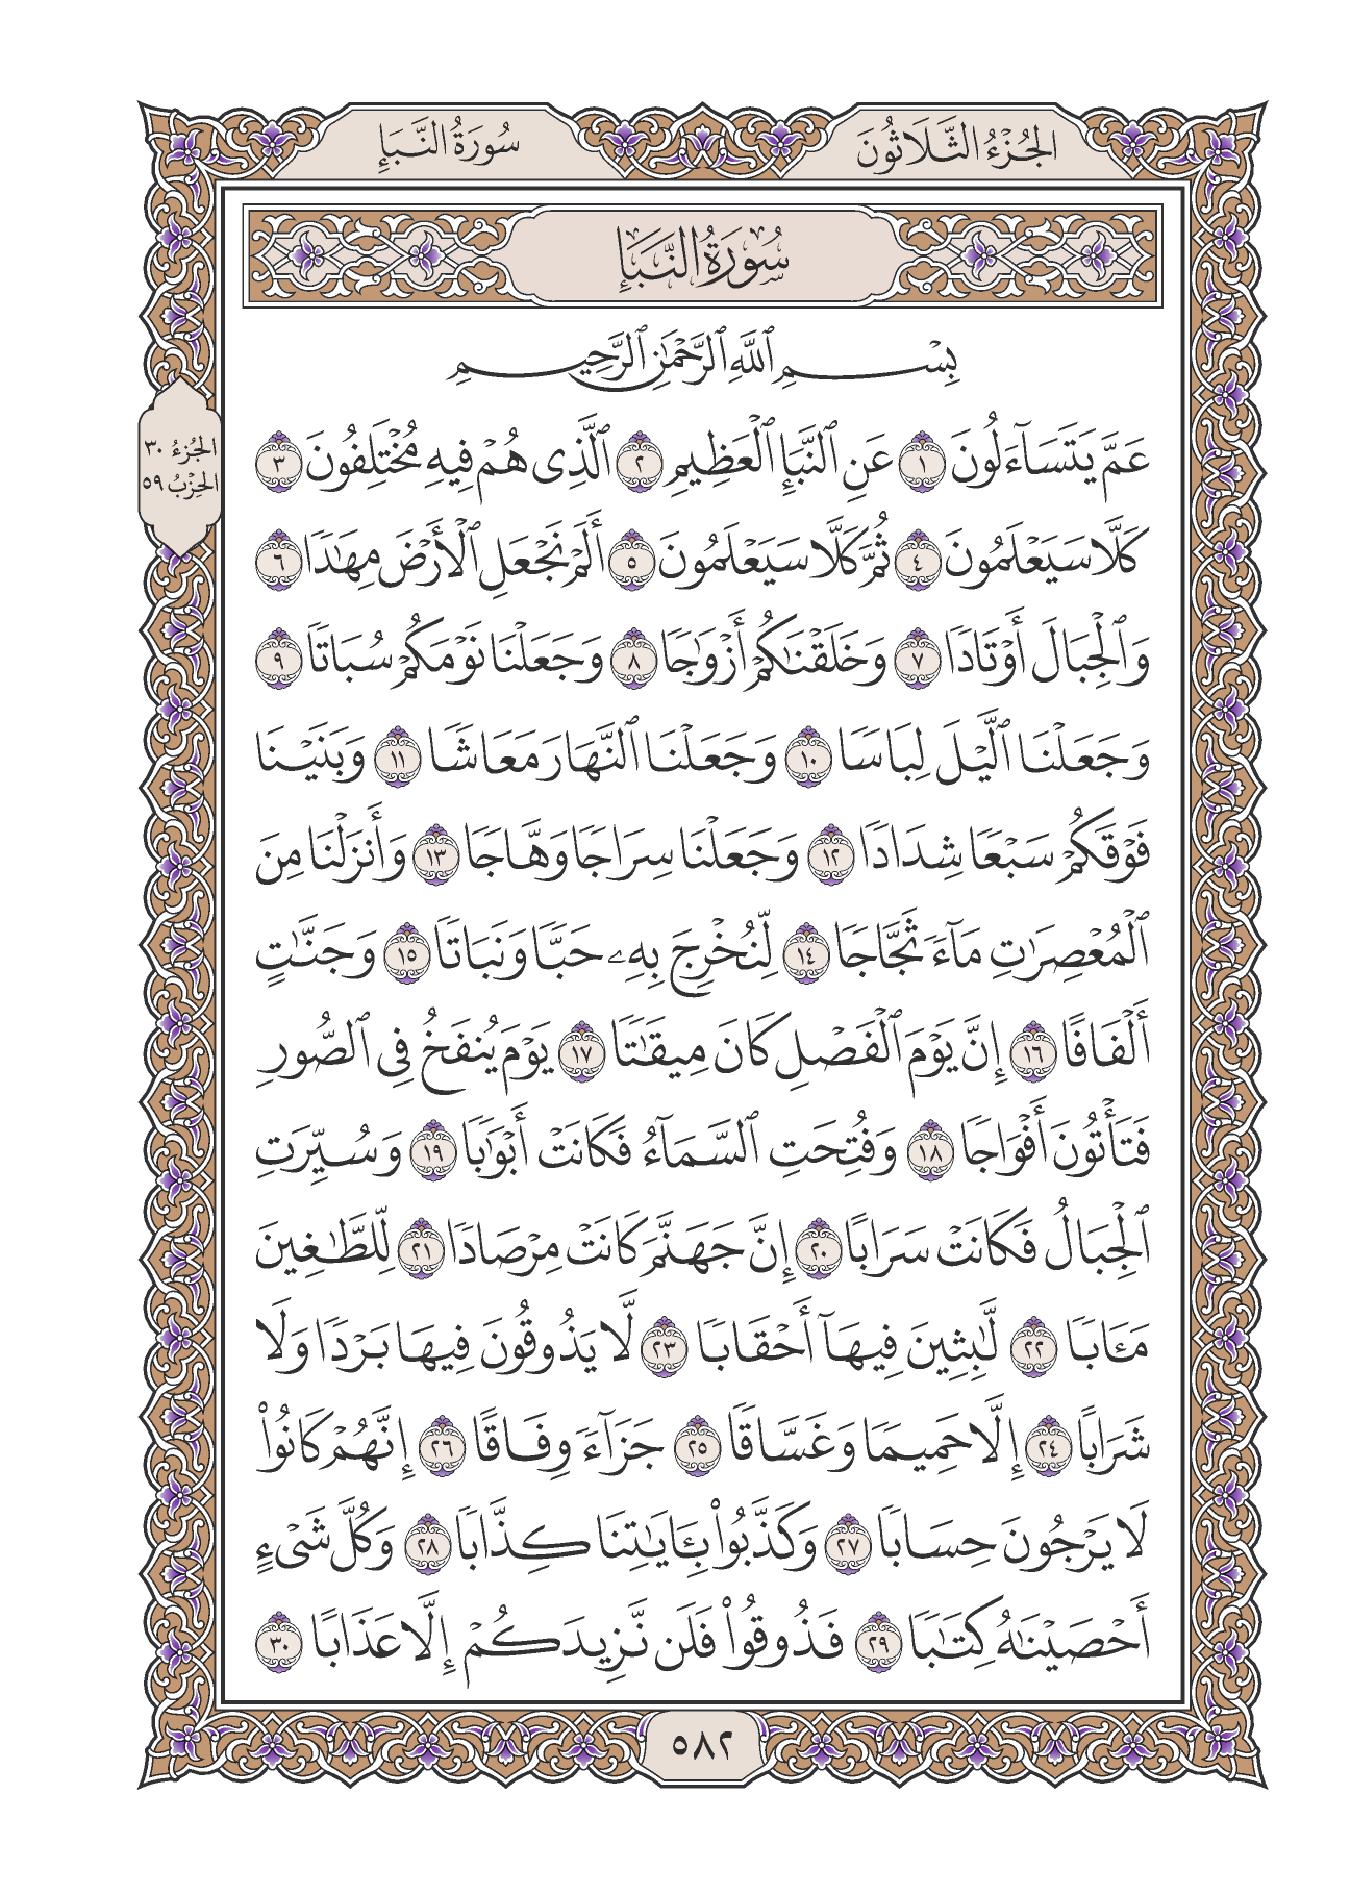 الجُزْءُ الثَّلَاثُونَ
سُورَةُ النَّبَإِ
سُورَةُ النَّبَإِ
بِسْمِ ٱللَّهِ ٱلرَّحْمَٰنِ ٱلرَّحِيمِ
عَمَّ يَتَسَآءَلُونَ ١ عَنِ ٱلنَّبَإِ ٱلْعَظِيمِ ٢ ٱلَّذِى هُمْ فِيهِ مُخْتَلِفُونَ ٣
الجُزْءُ ٣٠
الحِزْبُ ٥٩
كَلَّا سَيَعْلَمُونَ ٤ ثُمَّ كَلَّا سَيَعْلَمُونَ ٥ أَلَمْ نَجْعَلِ ٱلْأَرْضَ مِهَٰدًا ٦
وَٱلْجِبَالَ أَوْتَادًا ٧ وَخَلَقْنَٰكُمْ أَزْوَٰجًا ٨ وَجَعَلْنَا نَوْمَكُمْ سُبَاتًا ٩
وَجَعَلْنَا ٱلَّيْلَ لِبَاسًا ١٠ وَجَعَلْنَا ٱلنَّهَارَ مَعَاشًا ١١ وَبَنَيْنَا
فَوْقَكُمْ سَبْعًا شِدَادًا ١٢ وَجَعَلْنَا سِرَاجًا وَهَّاجًا ١٣ وَأَنزَلْنَا مِنَ
ٱلْمُعْصِرَٰتِ مَآءً ثَجَّاجًا ١٤ لِّنُخْرِجَ بِهِۦ حَبًّا وَنَبَاتًا ١٥ وَجَنَّٰتٍ
أَلْفَافًا ١٦ إِنَّ يَوْمَ ٱلْفَصْلِ كَانَ مِيقَٰتًا ١٧ يَوْمَ يُنفَخُ فِى ٱلصُّورِ
فَتَأْتُونَ أَفْوَاجًا ١٨ وَفُتِحَتِ ٱلسَّمَآءُ فَكَانَتْ أَبْوَٰبًا ١٩ وَسُيِّرَتِ
ٱلْجِبَالُ فَكَانَتْ سَرَابًا ٢٠ إِنَّ جَهَنَّمَ كَانَتْ مِرْصَادًا ٢١ لِّلطَّٰغِينَ
مَـَٔابًا ٢٢ لَّٰبِثِينَ فِيهَآ أَحْقَابًا ٢٣ لَّا يَذُوقُونَ فِيهَا بَرْدًا وَلَا
شَرَابًا ٢٤ إِلَّا حَمِيمًا وَغَسَّاقًا ٢٥ جَزَآءً وِفَاقًا ٢٦ إِنَّهُمْ كَانُوا۟
لَا يَرْجُونَ حِسَابًا ٢٧ وَكَذَّبُوا۟ بِـَٔايَٰتِنَا كِذَّابًا ٢٨ وَكُلَّ شَىْءٍ
أَحْصَيْنَٰهُ كِتَٰبًا ٢٩ فَذُوقُوا۟ فَلَن نَّزِيدَكُمْ إِلَّا عَذَابًا ٣٠
٥٨٢